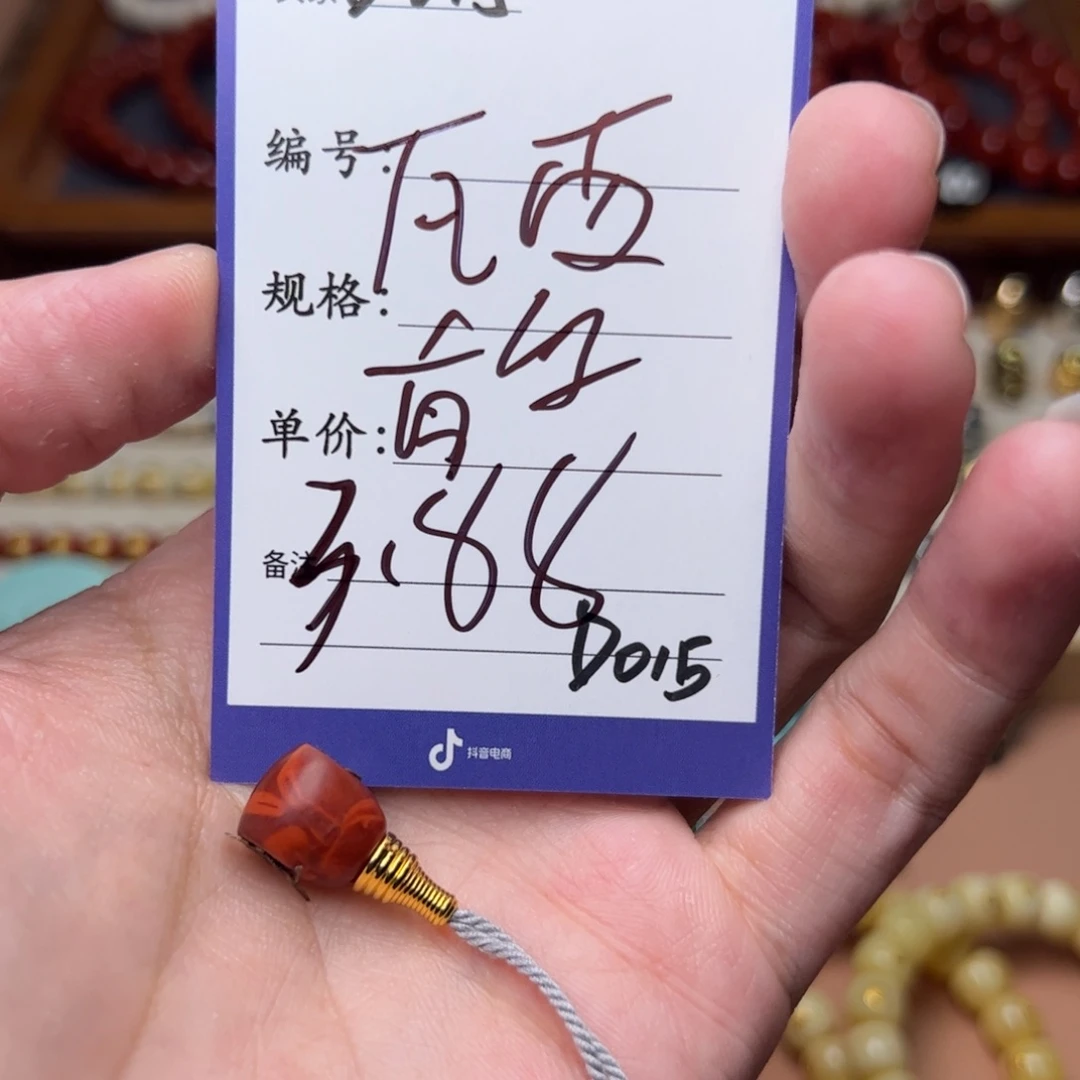 编号: 瓦西
规格:
单价: 南红
备注 3.84
D015
抖音电商